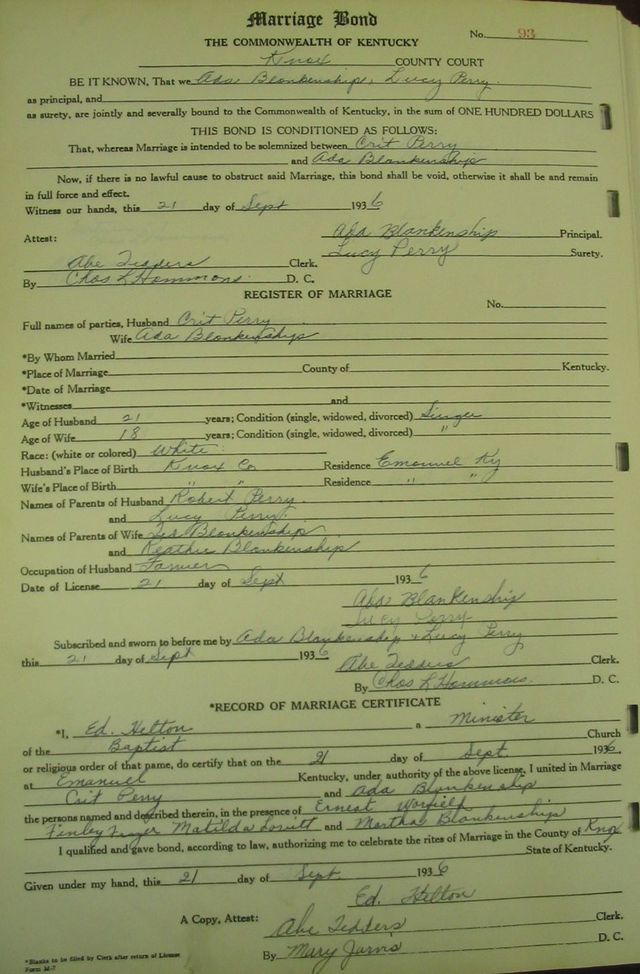 Marriage Bond
No. 93
THE COMMONWEALTH OF KENTUCKY
Knox COUNTY COURT
BE IT KNOWN, That we Ada Blankenship, Lucy Perry
as principal, and
as surety, are jointly and severally bound to the Commonwealth of Kentucky, in the sum of ONE HUNDRED DOLLARS
THIS BOND IS CONDITIONED AS FOLLOWS:
That, whereas Marriage is intended to be solemnized between Crit Perry
and Ada Blankenship
Now, if there is no lawful cause to obstruct said Marriage, this bond shall be void, otherwise it shall be and remain
in full force and effect.
Witness our hands, this 21 day of Sept 1936
Ada Blankenship Principal.
Attest: Lucy Perry Surety.
Abe Tedders Clerk.
By Chas L Hammons D. C.
REGISTER OF MARRIAGE
No.
Full names of parties, Husband Crit Perry
Wife Ada Blankenship
*By Whom Married
*Place of Marriage County of Kentucky.
*Date of Marriage
*Witnesses and
Age of Husband 21 years; Condition (single, widowed, divorced) Single
Age of Wife 18 years; Condition (single, widowed, divorced) "
Race: (white or colored) White
Husband's Place of Birth Knox Co Residence Emanuel Ky
Wife's Place of Birth " " Residence " "
Names of Parents of Husband Robert Perry
and Lucy Perry
Names of Parents of Wife Blankenship
and Blankenship
Occupation of Husband Farmer
Date of License 21 day of Sept 1936
Ada Blankenship
Lucy Perry
Subscribed and sworn to before me by Ada Blankenship + Lucy Perry
this 21 day of Sept 1936 Abe Tedders Clerk.
By Chas L Hammons D. C.
*RECORD OF MARRIAGE CERTIFICATE
*I, Ed. Helton a Minister
of the Baptist Church
or religious order of that name, do certify that on the 21 day of Sept. 1936,
at Emanuel Kentucky, under authority of the above license, I united in Marriage
Crit Perry and Ada Blankenship
the persons named and described therein, in the presence of Ernest
Finley Matilda and Martha Blankenship
I qualified and gave bond, according to law, authorizing me to celebrate the rites of Marriage in the County of Knox
State of Kentucky.
Given under my hand, this 21 day of Sept. 1936
Ed. Helton
A Copy, Attest: Abe Tedders Clerk.
By Mary Jarvis D. C.
*Blanks to be filed by Clerk after return of License
Form M-7